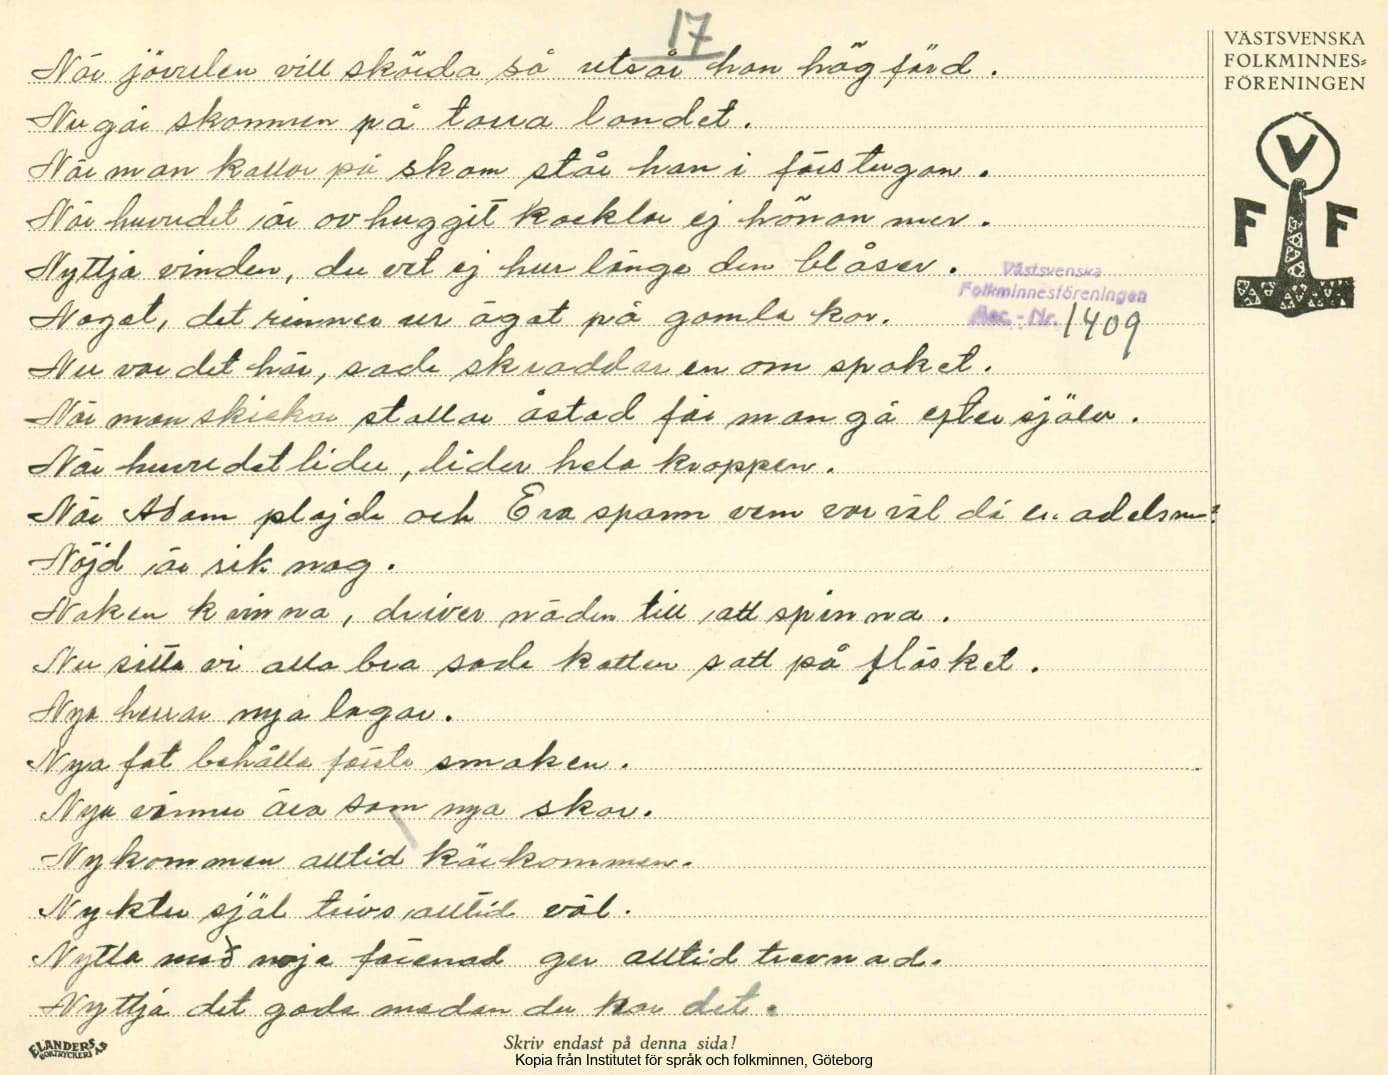 17
När jävulen vill skörda så utsår han högfärd.
Nu går skammen på torra landet.
När man kallar på skam står han i förstugan.
När huvudet är avhuggit kacklar ej hönan mer.
Nyttja vinden, du vet ej hur länge den blåser.
Något, det rinner ur ögat på gamla kor.
Nu var det här, sade skräddaren om spöket.
När man skickar stallar åstad får man gå efter själv.
När huvudet lider, lider hela kroppen.
När Adam plöjde och Eva spann vem var väl då en adelsman?
Nöjd är rik nog.
Naken kvinna, driver nöden till att spinna.
Nu sitta vi alla bra sade katten satt på fläsket.
Nya herrar nya lagar.
Nya fat behålla första smaken.
Nya vänner äro som nya skor.
Nykommen alltid kärkommen.
Nykter själ trivs alltid väl.
Nytta med nöje förenad ger alltid trevnad.
Nyttja det goda medan du har det.
VÄSTSVENSKA
FOLKMINNES-
FÖRENINGEN
V
F F
Västsvenska
Folkminnesföreningen
Acc.-Nr. 1409
ELANDERS
BOKTRYCKERI AB
Skriv endast på denna sida!
Kopia från Institutet för språk och folkminnen, Göteborg